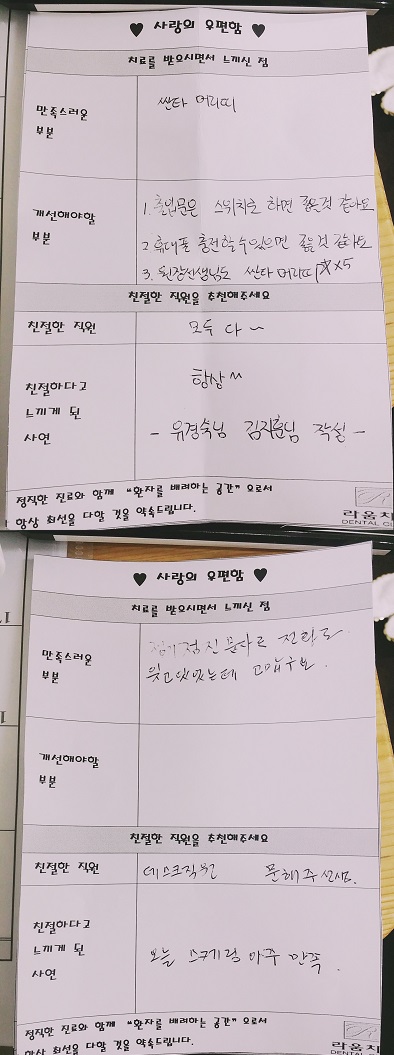 ♥ 사랑의 우편함 ♥
치료를 받으시면서 느끼신 점
만족스러운
부분
싼타 머리띠
개선해야할
부분
1. 출입문은 스위치로 하면 좋을것 같아요
2. 휴대폰 충전할 수 있으면 좋을것 같아요
3. 원장선생님도 싼타 머리띠 ☆×5
친절한 직원을 추천해주세요
친절한 직원
모두 다~
친절하다고
느끼게 된
사연
항상^^
- 유경숙님 김지훈님 작성 -
정직한 진료와 함께 "환자를 배려하는 공간"으로서
항상 최선을 다할 것을 약속드립니다.
라움치
DENTAL CL
♥ 사랑의 우편함 ♥
치료를 받으시면서 느끼신 점
만족스러운
부분
정기검진 문자로 전화로
잊고있었는데 고맙구요.
개선해야할
부분
친절한 직원을 추천해주세요
친절한 직원
데스크직원 문혜주 선생님.
친절하다고
느끼게 된
사연
오늘 스케링 아주 만족.
정직한 진료와 함께 "환자를 배려하는 공간"으로서
항상 최선을 다할 것을 약속드립니다.
라움치
DENTAL